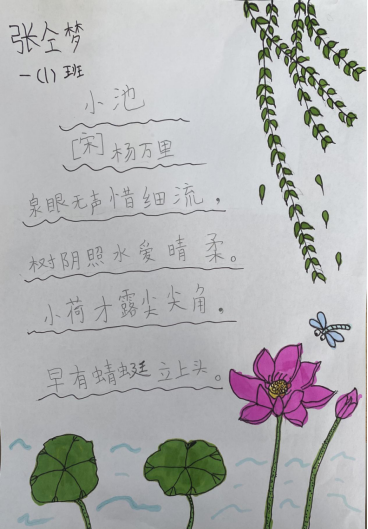 张仝梦
一(1)班
小池
[宋]杨万里
泉眼无声惜细流，
树阴照水爱晴柔。
小荷才露尖尖角，
早有蜻蜓立上头。